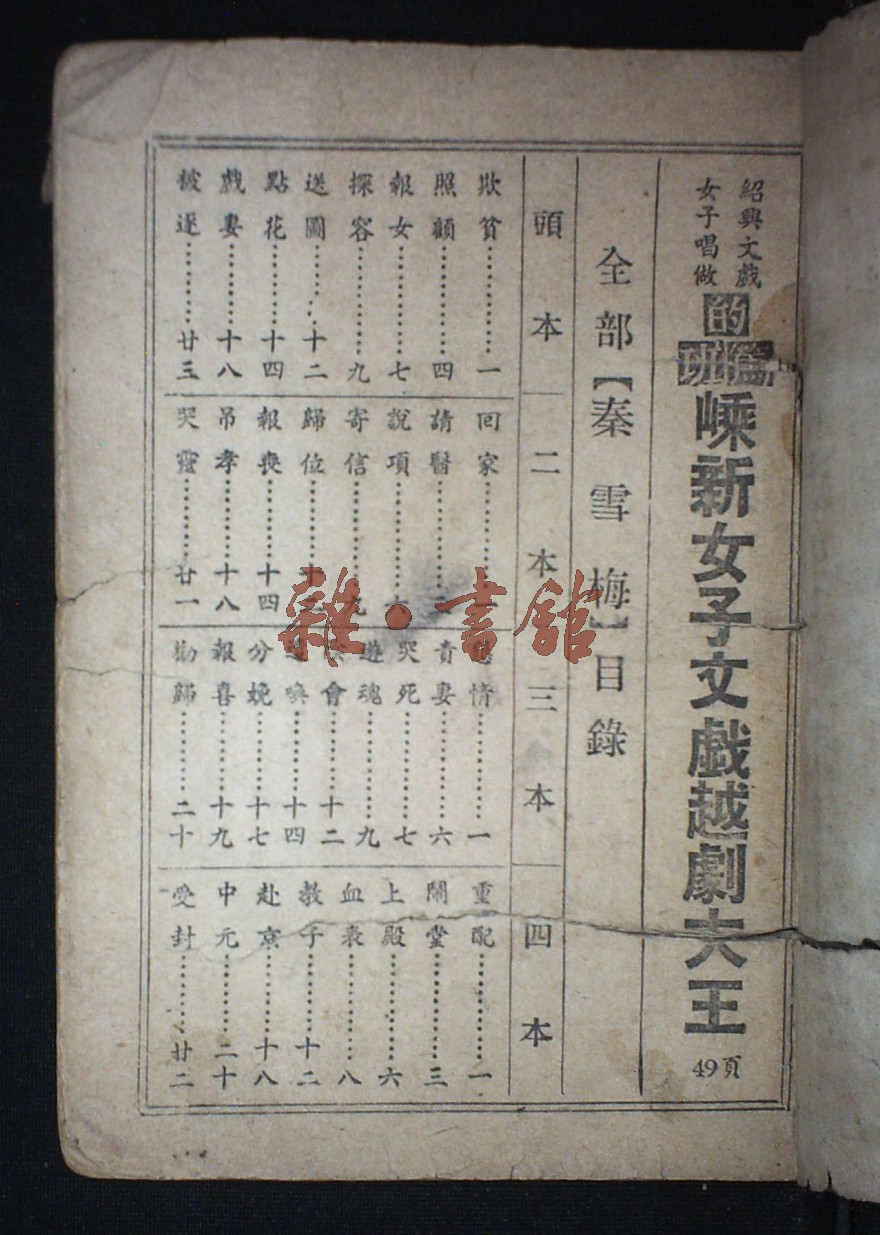 紹興文戲
女子唱做
的篤班
嵊新女子文戯越劇大王
49頁
全部【秦雪梅】目錄
頭本
欺貧…………一
照顧…………四
報女…………七
探容…………九
送圖…………十二
點花…………十四
戲妻…………十八
被逐…………廿三
二本
回家…………
請醫…………
說項…………
寄信…………九
歸位…………
報喪…………十四
吊孝…………十八
哭靈…………廿一
三本
情…………一
責妻…………六
哭死…………七
遊魂…………九
會…………十二
喚…………十四
分娩…………十七
報喜…………十九
勸歸…………二十
四本
重配…………一
鬧堂…………三
上殿…………六
血表…………八
教子…………十二
赴京…………十八
中元…………二十
受封…………廿二
雜·書館